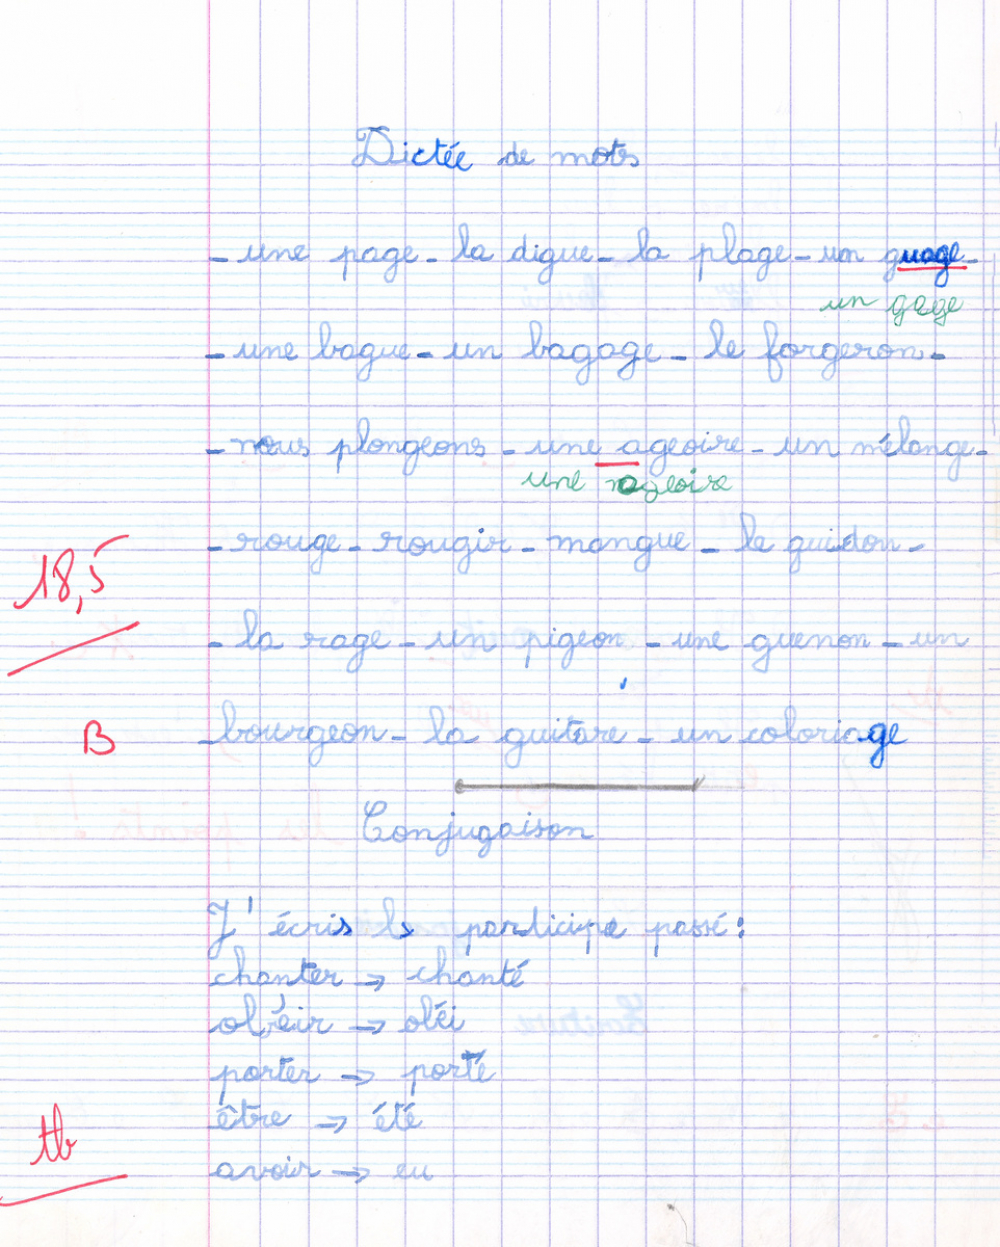 Dictée de mots
- une page - la digue - la plage - un guage -
un gage
- une bague - un bagage - le forgeron -
- nous plongeons - une ageoire - un mélange -
une nageoire
- rouge - rougir - mangue - le guidon -
18,5
- la rage - un pigeon - une guenon - un
B
bourgeon - la guitare - un coloriage
Conjugaison
J'écris le participe passé :
chanter → chanté
obéir → obéi
porter → porté
être → été
tb
avoir → eu